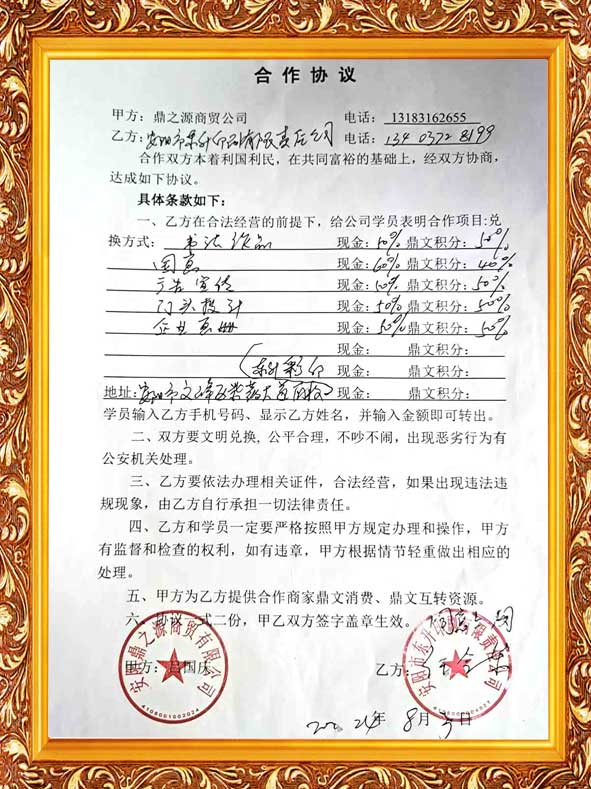 合作协议
甲方：鼎之源商贸公司 电话：13183162655
乙方：安阳市东升印刷有限责任公司 电话：134 0372 8199
合作双方本着利国利民，在共同富裕的基础上，经双方协商，
达成如下协议。
具体条款如下：
一、乙方在合法经营的前提下，给公司学员表明合作项目:兑
换方式：书法作品 现金：50% 鼎文积分：50%
国画 现金：60% 鼎文积分：40%
广告宣传 现金：50% 鼎文积分：50%
门头设计 现金：50% 鼎文积分：50%
企业画册 现金：50% 鼎文积分：50%
现金： 鼎文积分：
彩印 现金： 鼎文积分：
地址：安阳市文峰区 大道 现金： 鼎文积分：
学员输入乙方手机号码、显示乙方姓名，并输入金额即可转出。
二、双方要文明兑换, 公平合理，不吵不闹，出现恶劣行为有
公安机关处理。
三、乙方要依法办理相关证件，合法经营，如果出现违法违
规现象，由乙方自行承担一切法律责任。
四、乙方和学员一定要严格按照甲方规定办理和操作，甲方
有监督和检查的权利，如有违章，甲方根据情节轻重做出相应的
处理。
五、甲方为乙方提供合作商家鼎文消费、鼎文互转资源。
六、协议一式二份，甲乙双方签字盖章生效。
甲方：吕国庆 乙方：
安阳鼎之源商贸有限公司
4106001002024
安阳市东升印刷有限责任公司
8月5日